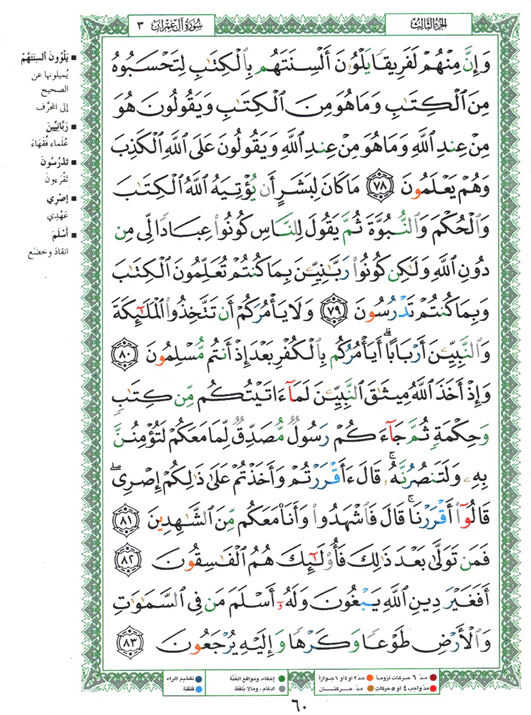 الجزء الثالث
سورة آل عمران ٣
وَإِنَّ مِنْهُمْ لَفَرِيقًا يَلْوُۥنَ أَلْسِنَتَهُم بِٱلْكِتَٰبِ لِتَحْسَبُوهُ
مِنَ ٱلْكِتَٰبِ وَمَا هُوَ مِنَ ٱلْكِتَٰبِ وَيَقُولُونَ هُوَ
مِنْ عِندِ ٱللَّهِ وَمَا هُوَ مِنْ عِندِ ٱللَّهِ وَيَقُولُونَ عَلَى ٱللَّهِ ٱلْكَذِبَ
وَهُمْ يَعْلَمُونَ ٧٨ مَا كَانَ لِبَشَرٍ أَن يُؤْتِيَهُ ٱللَّهُ ٱلْكِتَٰبَ
وَٱلْحُكْمَ وَٱلنُّبُوَّةَ ثُمَّ يَقُولَ لِلنَّاسِ كُونُوا۟ عِبَادًا لِّى مِن
دُونِ ٱللَّهِ وَلَٰكِن كُونُوا۟ رَبَّٰنِيِّۦنَ بِمَا كُنتُمْ تُعَلِّمُونَ ٱلْكِتَٰبَ
وَبِمَا كُنتُمْ تَدْرُسُونَ ٧٩ وَلَا يَأْمُرَكُمْ أَن تَتَّخِذُوا۟ ٱلْمَلَٰٓئِكَةَ
وَٱلنَّبِيِّۦنَ أَرْبَابًا ۗ أَيَأْمُرُكُم بِٱلْكُفْرِ بَعْدَ إِذْ أَنتُم مُّسْلِمُونَ ٨٠
وَإِذْ أَخَذَ ٱللَّهُ مِيثَٰقَ ٱلنَّبِيِّۦنَ لَمَآ ءَاتَيْتُكُم مِّن كِتَٰبٍ
وَحِكْمَةٍ ثُمَّ جَآءَكُمْ رَسُولٌ مُّصَدِّقٌ لِّمَا مَعَكُمْ لَتُؤْمِنُنَّ
بِهِۦ وَلَتَنصُرُنَّهُۥ ۚ قَالَ ءَأَقْرَرْتُمْ وَأَخَذْتُمْ عَلَىٰ ذَٰلِكُمْ إِصْرِى ۖ
قَالُوٓا۟ أَقْرَرْنَا ۚ قَالَ فَٱشْهَدُوا۟ وَأَنَا۠ مَعَكُم مِّنَ ٱلشَّٰهِدِينَ ٨١
فَمَن تَوَلَّىٰ بَعْدَ ذَٰلِكَ فَأُو۟لَٰٓئِكَ هُمُ ٱلْفَٰسِقُونَ ٨٢
أَفَغَيْرَ دِينِ ٱللَّهِ يَبْغُونَ وَلَهُۥٓ أَسْلَمَ مَن فِى ٱلسَّمَٰوَٰتِ
وَٱلْأَرْضِ طَوْعًا وَكَرْهًا وَإِلَيْهِ يُرْجَعُونَ ٨٣
يَلْوُونَ أَلْسِنَتَهُمْ
يُميلونها عن
الصحيح
إلى المحرَّف
رَبَّانِيِّينَ
عُلَماء فُقَهَاءَ
تَدْرُسُونَ
تَقْرَءونَ
إِصْرِي
عَهْدِي
أَسْلَمَ
انقادَ وخضَع
مدّ ٦ حركات لزوماً
مدّ ٢ أو ٤ أو ٦ جوازاً
إخفاء، ومواقع الغُنَّة
تفخيم الراء
مدّ واجب ٤ أو ٥ حركات
مدّ حركتان
ادغام، وما لا يُلفَظ
قلقلة
٦٠